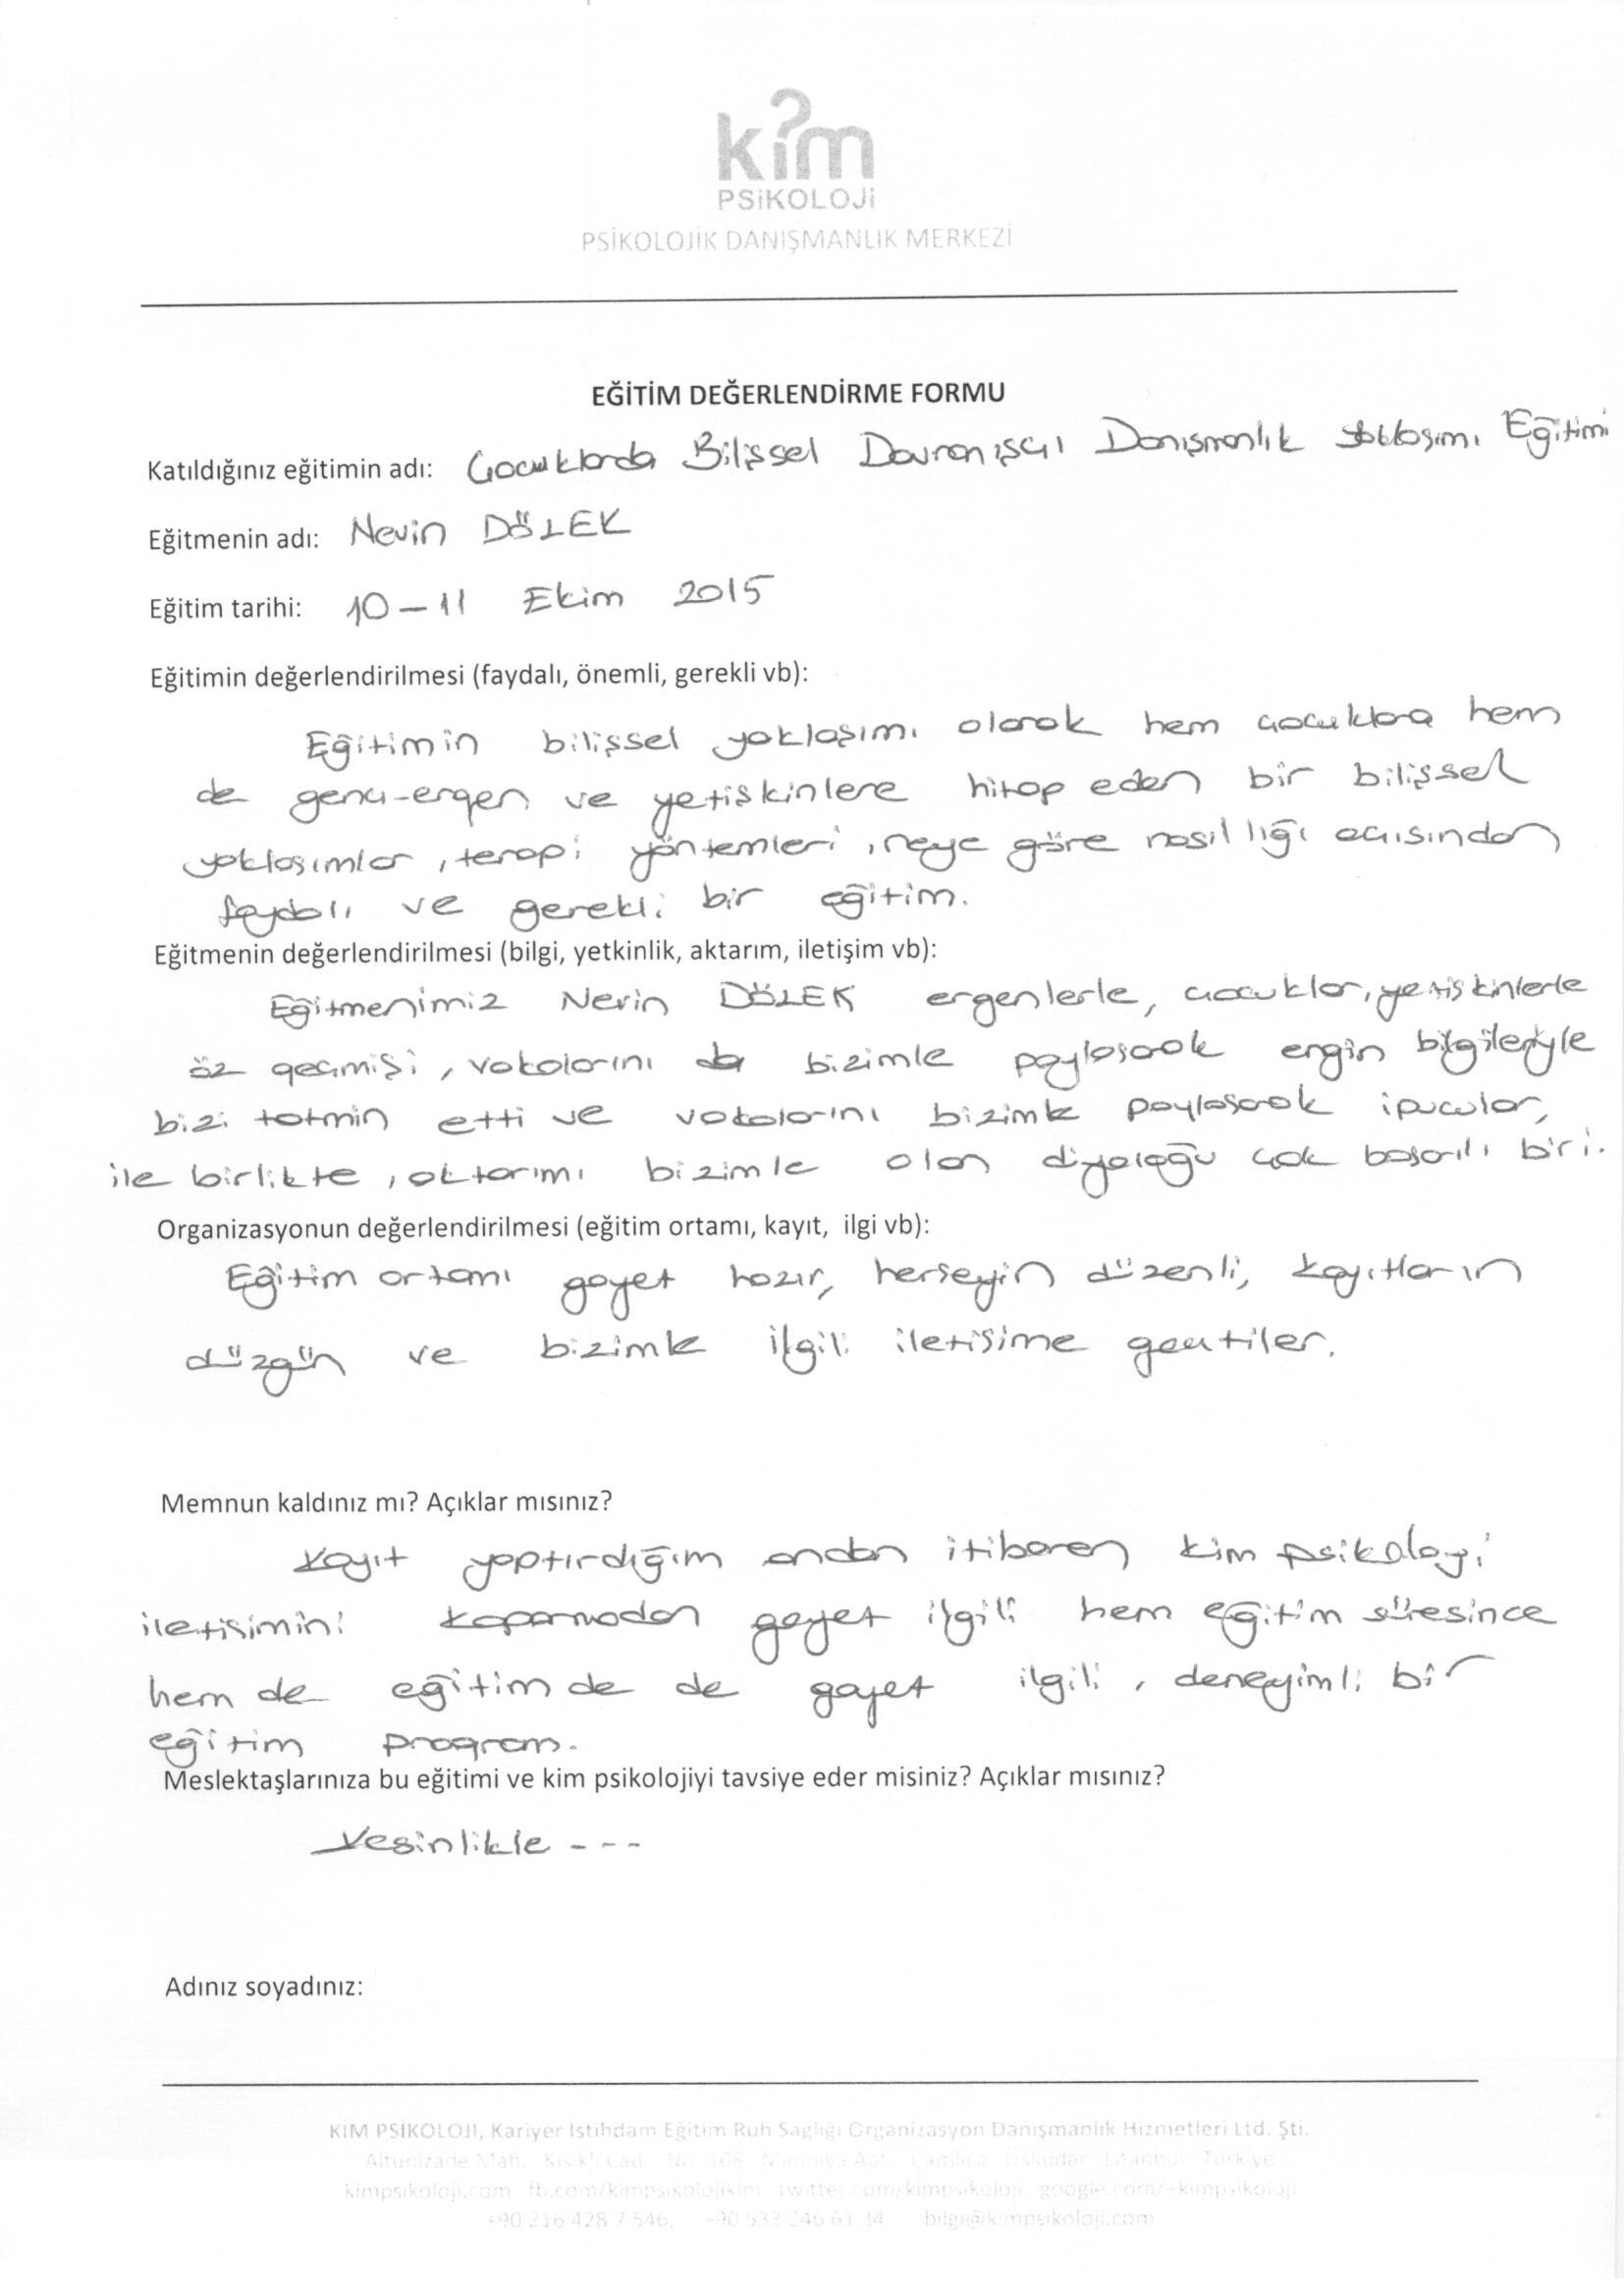 kim
PSiKOLOJi
PSİKOLOJİK DANIŞMANLIK MERKEZİ
EĞİTİM DEĞERLENDİRME FORMU
Katıldığınız eğitimin adı: Çocuklarda Bilişsel Davranışçıl Danışmanlık Yaklaşımı Eğitimi
Eğitmenin adı: Nevin DÖLEK
Eğitim tarihi: 10-11 Ekim 2015
Eğitimin değerlendirilmesi (faydalı, önemli, gerekli vb):
Eğitimin bilişsel yaklaşımı olarak hem çocuklara hem
de genç-ergen ve yetişkinlere hitap eden bir bilişsel
yaklaşımlar, terapi yöntemleri, neye göre nasıllığı açısından
faydalı ve gerekli bir eğitim.
Eğitmenin değerlendirilmesi (bilgi, yetkinlik, aktarım, iletişim vb):
Eğitmenimiz Nevin DÖLEK ergenlerle, çocuklar, yetişkinlerle
öz geçmişi, vakalarını da bizimle paylaşarak engin bilgileriyle
bizi tatmin etti ve vakalarını bizimle paylaşarak ipuçları
ile birlikte, aktarımı bizimle olan diyaloğu çok başarılı biri.
Organizasyonun değerlendirilmesi (eğitim ortamı, kayıt, ilgi vb):
Eğitim ortamı gayet hazır, herşeyin düzenli, kayıtların
düzgün ve bizimle ilgili iletişime geçtiler.
Memnun kaldınız mı? Açıklar mısınız?
Kayıt yaptırdığım andan itibaren kim psikoloji
iletişimini koparmadan gayet ilgili hem eğitim süresince
hem de eğitimde de gayet ilgili, deneyimli bir
eğitim program.
Meslektaşlarınıza bu eğitimi ve kim psikolojiyi tavsiye eder misiniz? Açıklar mısınız?
Kesinlikle - - -
Adınız soyadınız:
KİM PSİKOLOJİ, Kariyer İstihdam Eğitim Ruh Sağlığı Organizasyon Danışmanlık Hizmetleri Ltd. Şti.
Altunizade Mah. Kısıklı Cad. No 108 Apt. Çamlıca Üsküdar İstanbul Türkiye
kimpsikoloji.com fb.com/kimpsikolojikim twitter.com/kimpsikoloji google.com/+kimpsikoloji
+90 216 428 7 546, +90 533 246 61 34 bilgi@kimpsikoloji.com